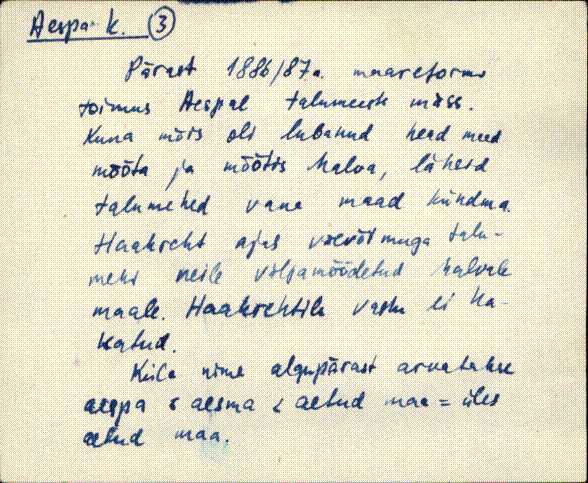 Aespa k. 3
Pärast 1886/87a. maareformi
toimus Aespal talumeeste mäss.
Kuna mõis oli lubanud head maad
mõõta ja mõõtis halva, läksid
talumehed vana maad kündma.
Haakreht ajas väevõimuga talu-
mehi neile väljamõõdetud halvale
maale. Haakrehtile vastu ei ha-
katud.
Küla nime algupärast arvatakse
aespa < aesma < aetud maa = üles
aetud maa.